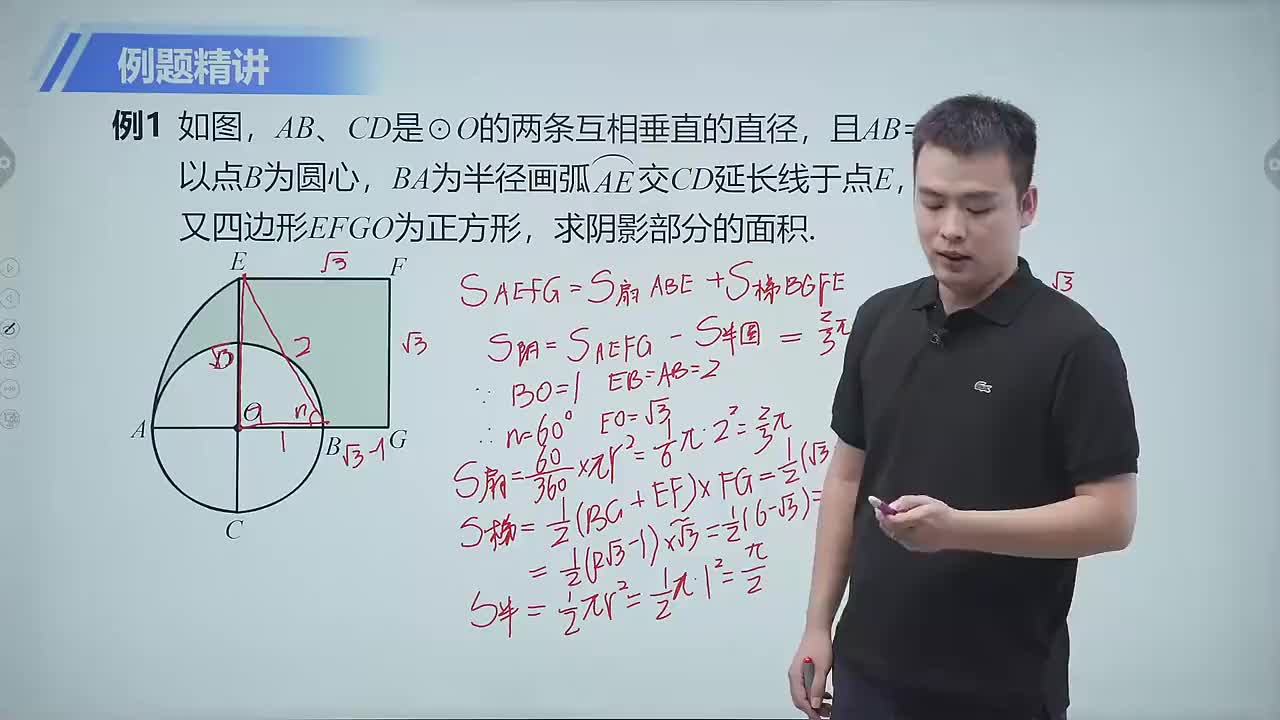 例题精讲
例1 如图，AB、CD是⊙O的两条互相垂直的直径，且AB=
以点B为圆心，BA为半径画弧AE交CD延长线于点E，
又四边形EFGO为正方形，求阴影部分的面积.
E √3 F
√3
√3 2
O n
A 1 B √3-1 G
C
S AEFG = S扇ABE + S梯BGFE
√3
S阴 = S AEFG - S半圆 = 2/3π
∵ BO=1 EB=AB=2
∴ n=60° EO=√3
S扇=60/360×πr²=1/6π·2²=2/3π
S梯=1/2(BG+EF)×FG=1/2(√3
=1/2(2√3-1)×√3=1/2(6-√3)=
S半=1/2πr²=1/2π·1²=π/2